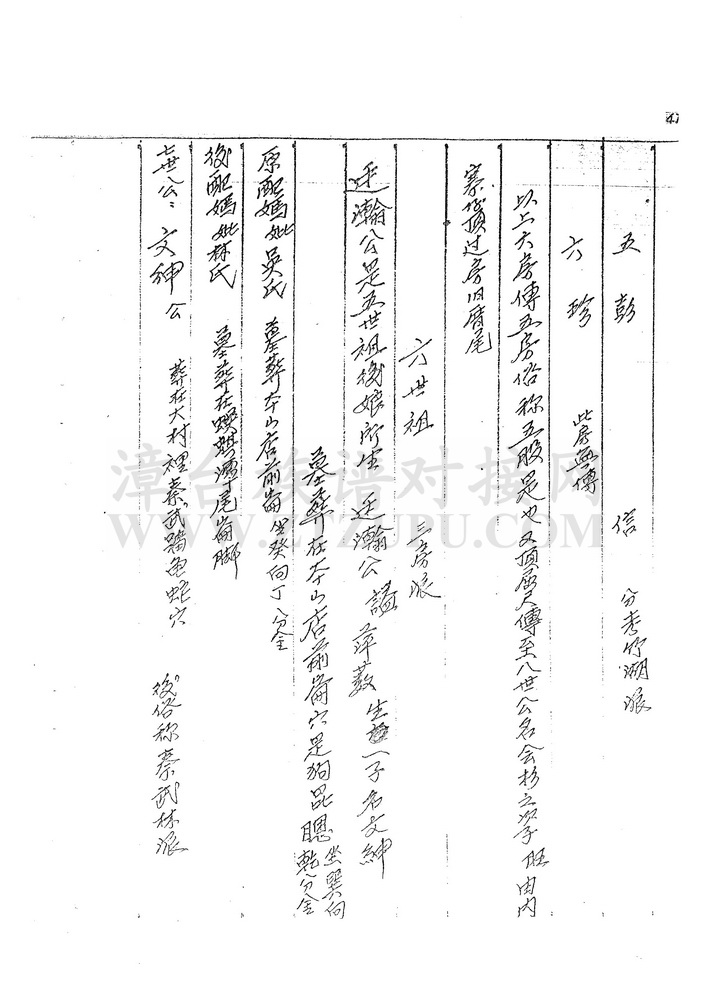 五彭 信 分秀竹湖派
六珍 此房無傳
以上六房傳五房俗称五股是也又頂厝只傳至八世公名会杉之次子旺由内
寨頂过房旧厝尾
六世祖 三房派
廷瀚公是五世祖後娘所生 廷瀚公 諡 萍薮 生一子名文紳
墓葬在本山店前崙穴是狗昆聰 坐巽向
乾分金
原配媽妣吳氏 墓葬本山店前崙 坐癸向丁分金
後配媽妣林氏 墓葬在 尾崙脚
七世公：文紳公 葬在大村裡秦武踏龟蛇穴 後俗称秦武林派
漳台族谱对接网
WWW.ZTZUPU.COM